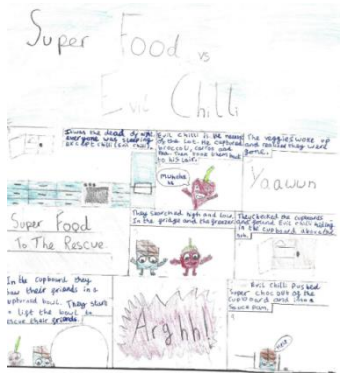 Super Food vs
Evil Chilli
It was the dead of night
everyone was sleeping
except chilli (Evil chilli).
Evil chilli is the
of the lot. He captured
broccoli, carrot and
pea. Then took them back
to his lair.
The veggies woke up
and realise they were
gone.
Mwaha
ha
Yaawun
Super Food
To The Rescue.
They searched high and low.
In the fridge and the freezer
They checked the cupboards
and found Evil chilli hiding
in the cupboard above the
In the cupboard they
saw their friends in a
upturned bowl. They start
to lift the bowl to
save their friends.
Arghh!
Evil chilli pushed
Super choc out of the
cupboard and into a